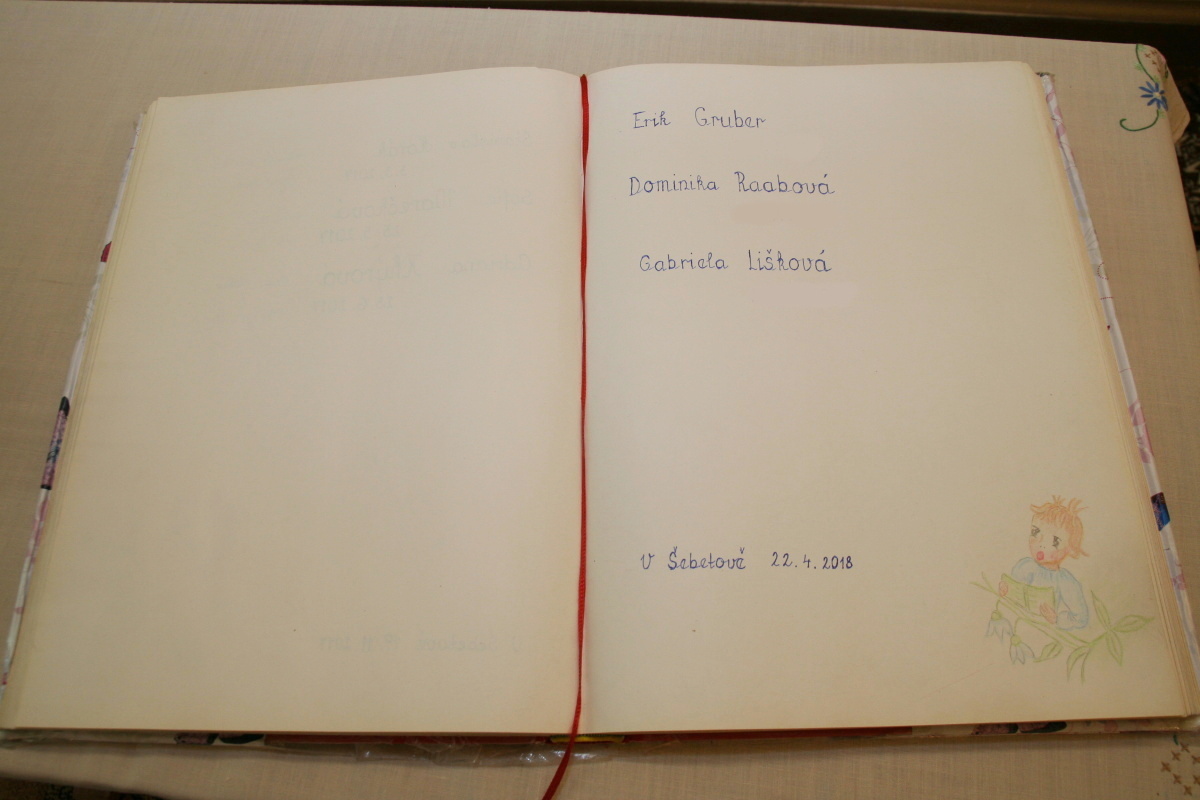 Erik Gruber
Dominika Raabová
Gabriela Lišková
V Šebetově 22.4.2018